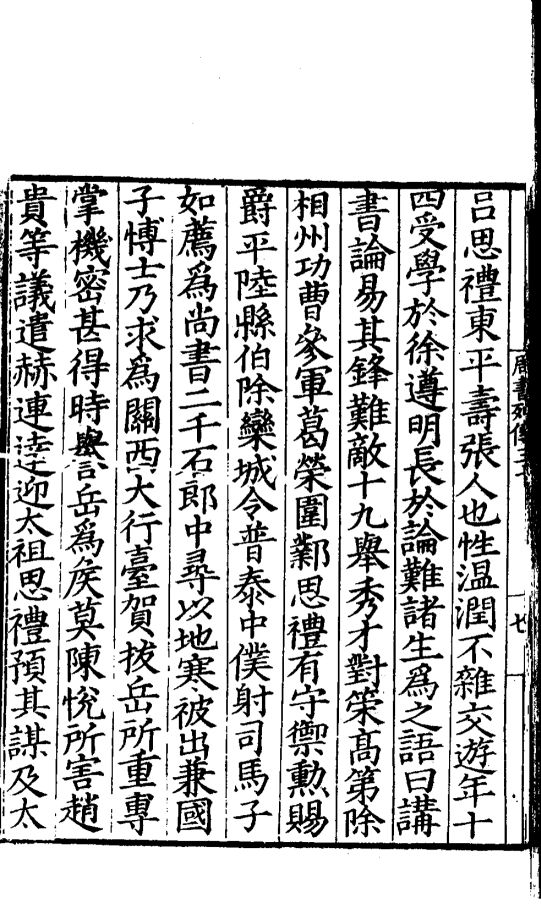 周書列傳三十
七
呂思禮東平壽張人也性温潤不雜交遊年十
四受學於徐遵明長於論難諸生爲之語曰講
書論易其鋒難敵十九舉秀才對策高第除
相州功曹參軍葛榮圍鄴思禮有守禦勲賜
爵平陸縣伯除欒城令普泰中僕射司馬子
如薦爲尚書二千石郎中尋以地寒被出兼國
子博士乃求爲關西大行臺賀拔岳所重專
掌機密甚得時譽岳爲侯莫陳悅所害趙
貴等議遣赫連逹迎太祖思禮預其謀及太